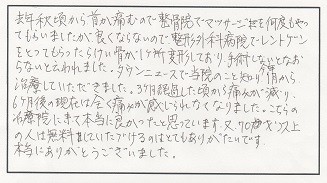 去年秋頃から首が痛むので整骨院でマッサージを何度もやって
もらいましたが良くならないので整形外科病院でレントゲン
をとってもらったらけい骨が1ヶ所変形しており手術しないとなお
らないと云われました。タウンニュースで当院のことを知り 月から
治療していただきました。3ヶ月経過した頃から痛みが減り、
6ヶ月後の現在は全く痛みが感じられなくなりました。こちらの
治療院に来て本当に良かったと思っています。又、70才以上
の人は無料 していただけるのはとてもありがたいです。
本当にありがとうございました。